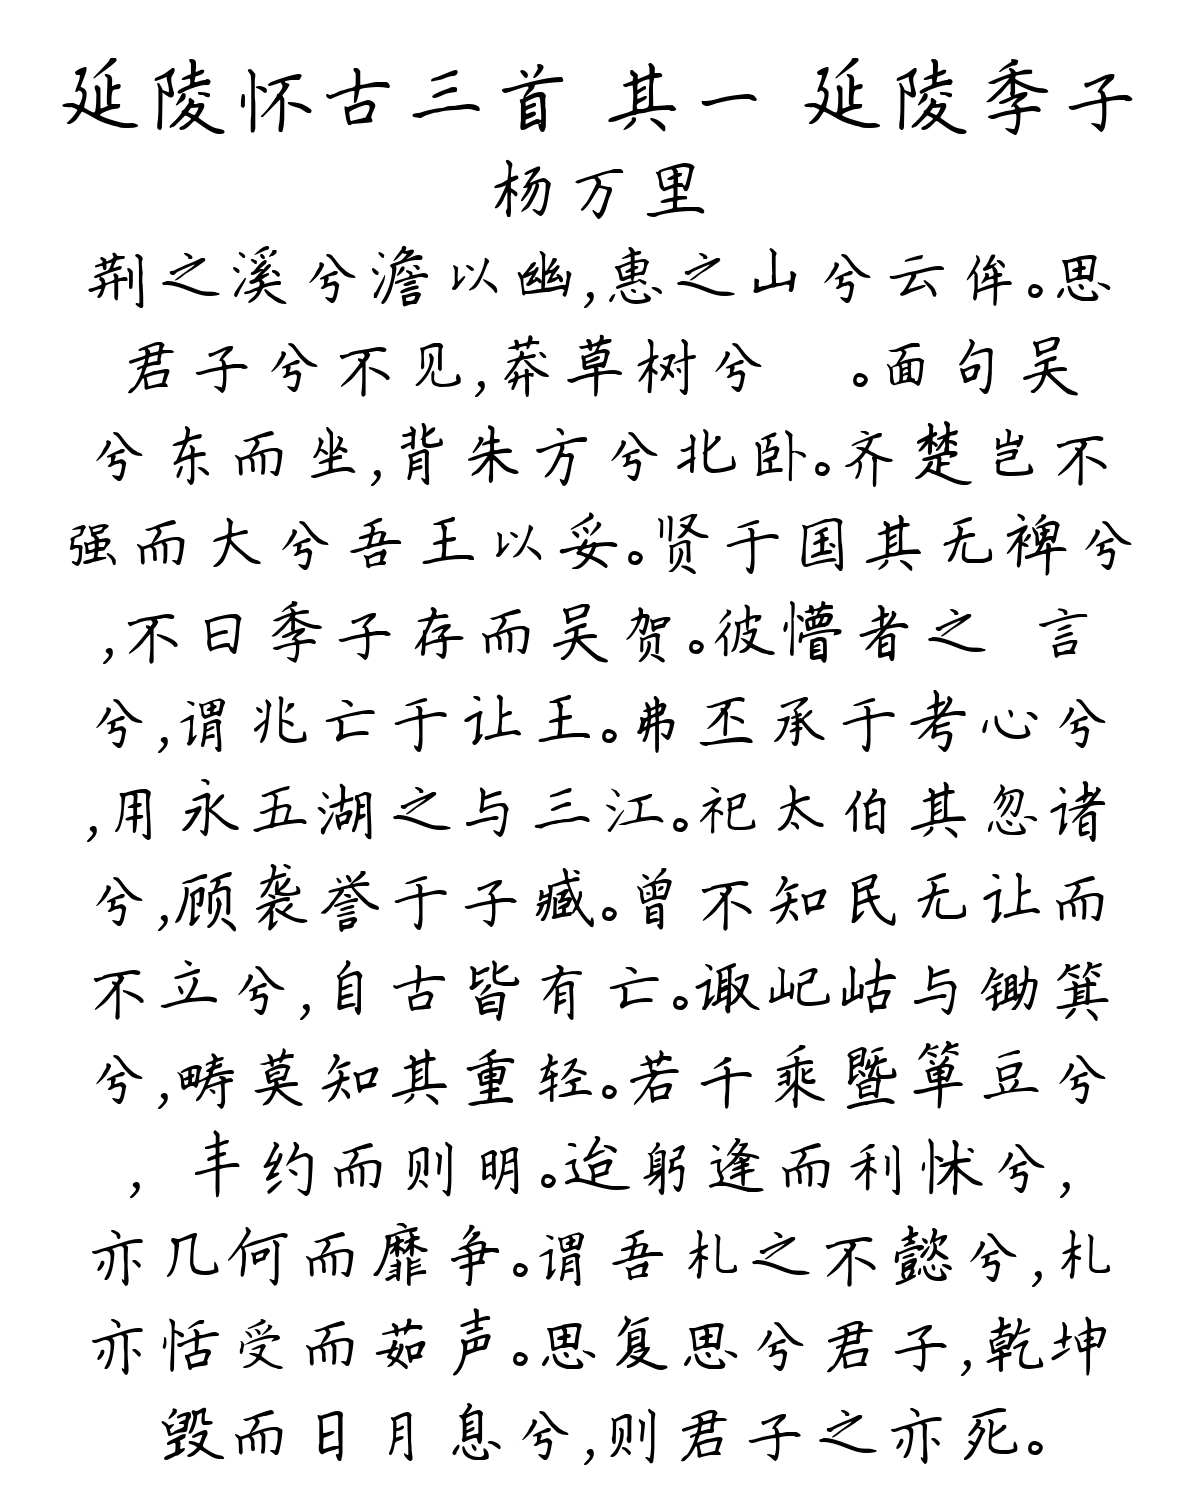 延陵怀古三首 其一 延陵季子
杨万里
荆之溪兮澹以幽,惠之山兮云侔。思
君子兮不见,莽草树兮 。面句吴
兮东而坐,背朱方兮北卧。齐楚岂不
强而大兮吾王以妥。贤于国其无裨兮
,不曰季子存而吴贺。彼懵者之 言
兮,谓兆亡于让王。弗丕承于考心兮
,用永五湖之与三江。祀太伯其忽诸
兮,顾袭誉于子臧。曾不知民无让而
不立兮,自古皆有亡。诹屺岵与锄箕
兮,畴莫知其重轻。若千乘暨箪豆兮
, 丰约而则明。迨躬逢而利怵兮,
亦几何而靡争。谓吾札之不懿兮,札
亦恬受而茹声。思复思兮君子,乾坤
毁而日月息兮,则君子之亦死。